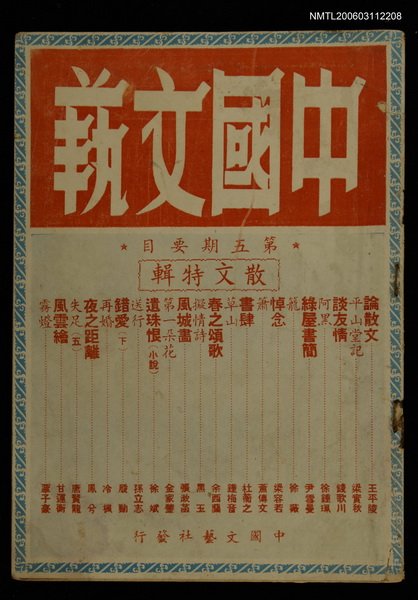 NMTL200603112208
中國文藝
★第五期要目★
散文特輯
論散文 王平陵
平山堂記 梁實秋
談友情 錢歌川
阿黑 徐鍾珮
綠屋書簡 尹雪曼
籠 徐薏
悼念 梁容若
簫 蕭傳文
書肆 杜蘅之
草山 鍾梅音
春之頌歌 余西蘭
擬情詩 墨玉
風城畫 張漱菡
第一朵花 金家驊
遺珠恨(小說) 徐斌
送行 孫立志
錯愛(下) 殷勤
再婚 冷楓
夜之距離 鳳兮
失足(五) 唐賢龍
風雲繪 甘運衡
霧燈 覃子豪
中國文藝社發行